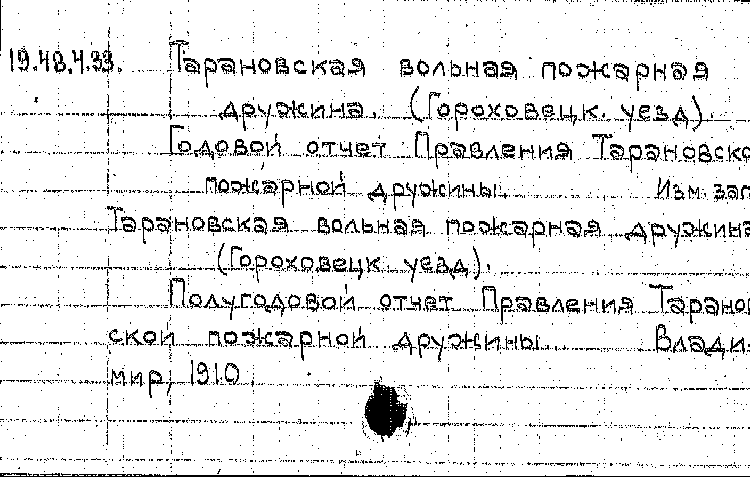 19.48.4.33. Тарановская вольная пожарная
дружина. (Гороховецк. уезд).
Годовой отчет Правления Тарановско
пожарной дружины. Изм. заг
Тарановская вольная пожарная дружина
(Гороховецк. уезд).
Полугодовой отчет Правления Таранов
ской пожарной дружины. Влади-
мир, 1910.